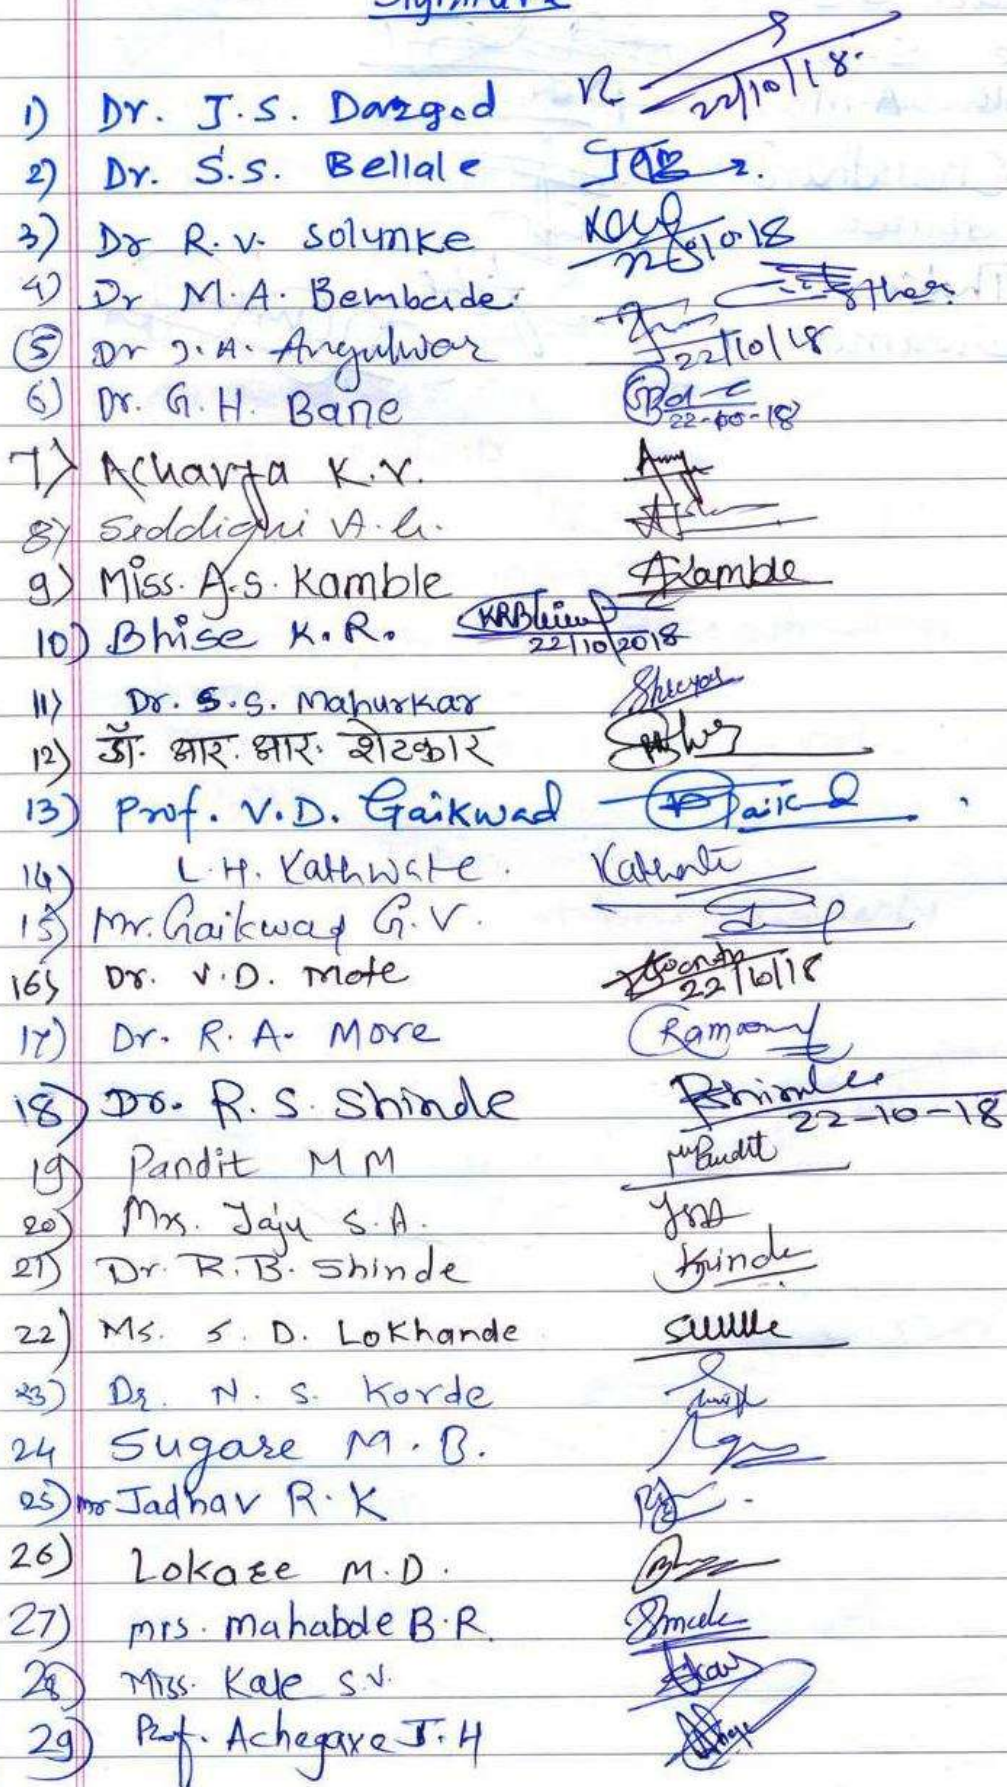 Signature
1) Dr. J.S. Dazgod 22/10/18.
2) Dr. S.S. Bellale
3) Dr R.V. Solunke
4) Dr M.A. Bembade
5) Dr J.A. Angulwar 22/10/18
6) Dr. G.H. Bane 22-10-18
7) Acharya K.Y.
8) Seddiqui A. G.
9) Miss. A.S. Kamble AKamble
10) Bhise K.R. 22/10/2018
11) Dr. S.S. Mahurkar
12) डॉ. आर. आर. शेटकार
13) Prof. V.D. Gaikwad
14) L.H. Kathwate.
15) Mr. Gaikwad G.V.
16) Dr. V.D. Mote 22/10/18
17) Dr. R.A. More
18) Dr. R.S. Shinde 22-10-18
19) Pandit MM
20) Mrs. Jaju S.A.
21) Dr. R.B. Shinde
22) Ms. S.D. Lokhande
23) Dr. N.S. Korde
24 Sugare M.B.
25) mr Jadhav R.K
26) Lokare M.D.
27) mrs. Mahabole B.R.
28) Miss. Kale S.V.
29) Prof. Achegave J.H